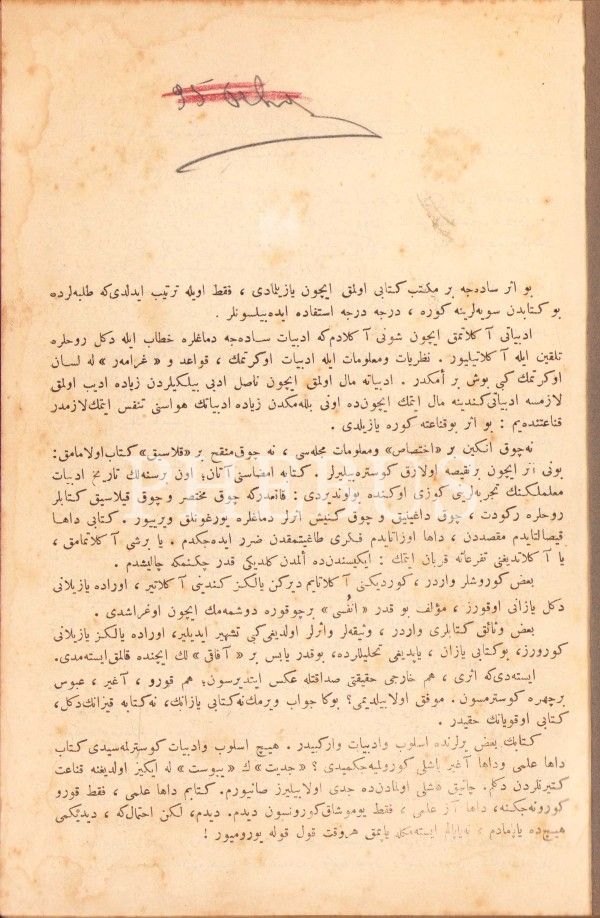 بو اثر ساده‌جه بر مكتب كتابی اولمق ایچون یازیلمادی ، فقط اویله ترتیب ایدلدی‌كه طلبه‌لرده
بو كتابدن سویه‌لرینه كوره ، درجه درجه استفاده ایده‌بیلسونلر .
ادبیاتی آ كلاتمق ایچون شونی آ كلادم‌كه ادبیات ســاده‌جه دماغلره خطاب ایله دكل روحلره
تلقین ایله آ كلاتیلیور . نظریات ومعلومات ایله ادبیات اوكرتمك ، قواعد و « غرامه‌ر » له لسان
اوكرتمك كبی بوش بر أمكدر . ادبیاته مال اولمق ایچون ناصل ادبی بیلكیلردن زیاده ادیب اولمق
لازمسه ادبیاتی كندینه مال ایتمك ایچون‌ده اونی بلله‌مكدن زیاده ادبیاتك هواسنی تنفس ایتمك لازمدر
قناعتنده‌یم : بو اثر بوقناعته كوره یازیلدی .
نه‌چوق انكین بر « اختصاص » ومعلومات مجله‌سی ، نه چوق منقح بر « قلاسیق » كتاب‌اولامامق:
بونی اثر ایچون برنقیصه اولارق كوستره‌بیلیرلر . كتابه امضاسنی آتان؛ اون برسنه‌لك تاریخ ادبیات
معلملكنك تجربه‌لرینی كوزی اوكنده بولوندیردی : قانعدركه چوق مختصر و چوق قبلاسیق كتابلر
روحلره ركودت ، چوق داغینیق و چوق كنیش اثرلر دماغلره یورغونلق ویرییور . كتابی داهـا
قیصالتایدم مقصددن ، داها اوزاتایدم فكری طاغیتمقدن ضرر ایده‌جكدم . یا برشی آ كلاتمامق ،
یا آ كلاتدیغنی تفرعاته قربان ایتمك : ایكیسندن‌ده ألمدن كلدیكی قدر چكنمكه چالیشدم .
بعض كوروشلر واردر ، كوردیكنی آ كلاتایم دیركن یالكز كندینی آ كلاتیر ، اوراده یازیلانی
دكل یازانی اوقورز ، مؤلف بو قدر « انفُسی » برچوقوره دوشمه‌مك ایچون اوغراشدی .
بعض وثائق كتابلری واردر ، وثیقه‌لر واثرلر اولدیغی‌كبی تشهیر ایدیلیر، اوراده یالكز یازیلانی
كورورز، بوكتابی یازان ، یاپدیغی تحلیللرده، بوقدر یابس بر « آفاقی » لك ایچنده قالمق‌ایسته‌مدی.
ایسته‌دی‌كه اثری ، هم خارجی حقیقتی صداقتله عكس ایتدیرسون؛ هم قورو ، آغیر ، عبوس
برچهره كوسترمسون . موفق اولابیلدیمی؟ بوكا جواب ویرمك‌نه‌كتابی یازانك، نه‌كتابه قیزانك‌دكل،
كتابی اوقویانك حقیدر .
كتابك بعض یرلرنده اسلوب وادبیات واركبیدر . هیـچ اسلوب وادبیات كوسترلمه‌سیدی كتاب
داها علمی وداها آغیر باشلی كورولمیه‌جكمیدی ؟ « جدیت » ك « یبوست » له ایكیز اولدیغنه قناعت
كتیرنلردن دكلم. چاتیق قاشلی اولمادن‌ده جدی اولابیلیرز صانیورم. كتابم داها علمی ، فقط قورو
كورونه‌جكنه، داها آز علمی ، فقط یوموشاق‌كورونسون دیدم. دیدم، لكن احتمال‌كه ، دیدیكمی
هیـچ‌ده یاپمادم ، نه‌یاپالم ایسته‌مكله یاپمق هروقت قول قوله یورومیور !